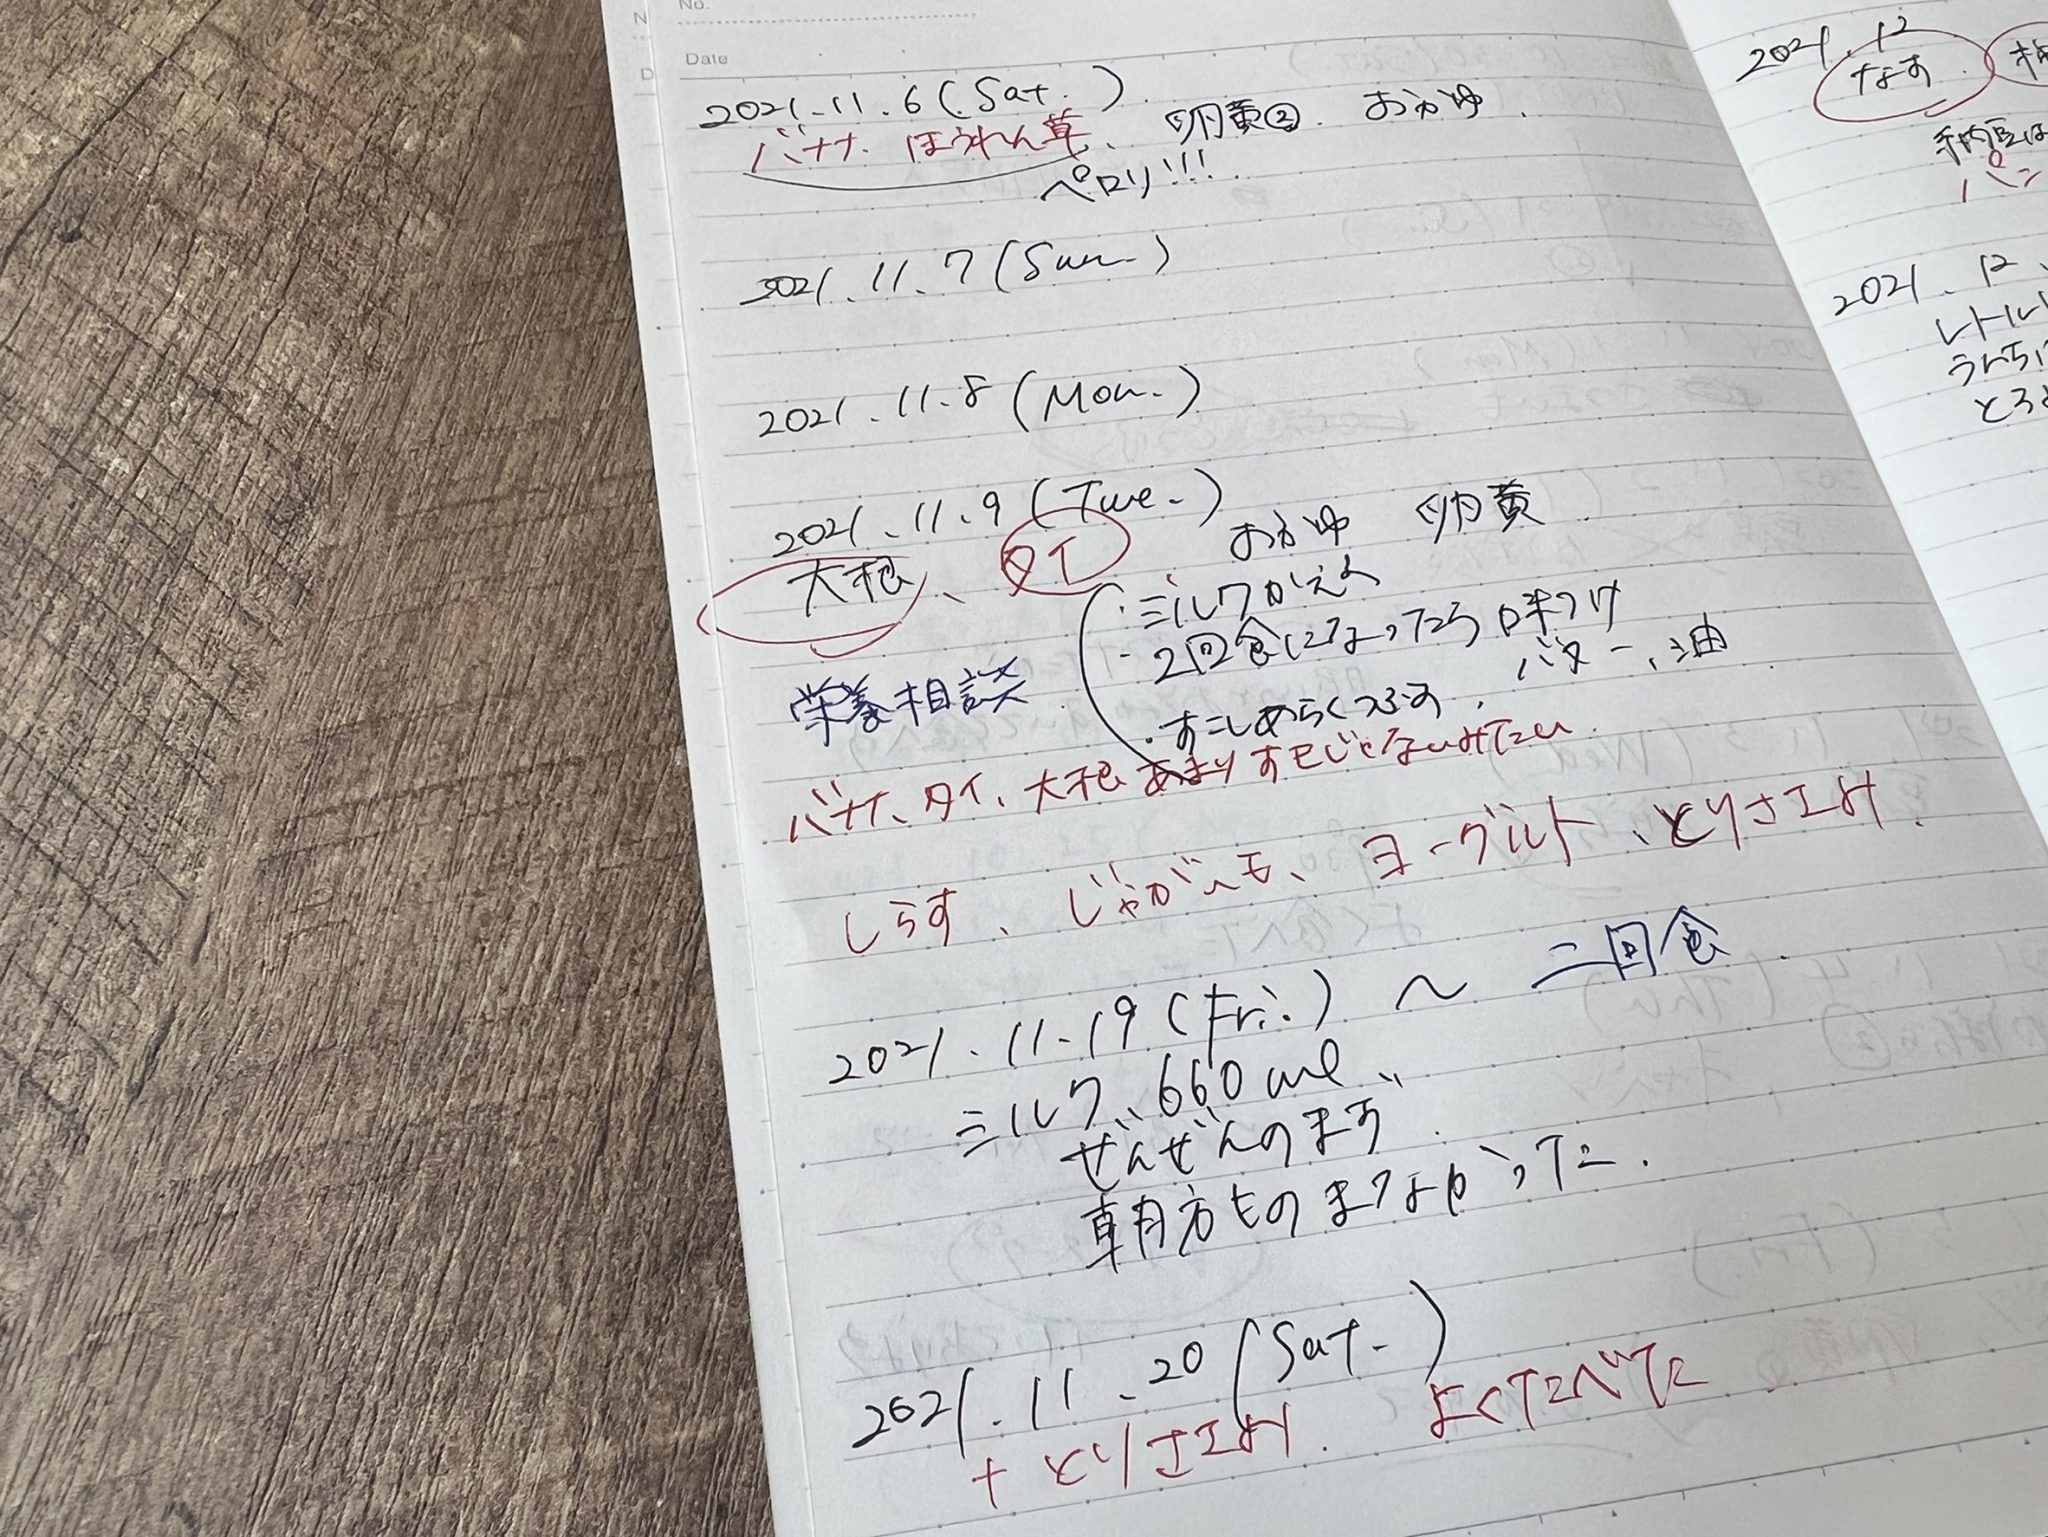 No.
Date
2021.11.6(Sat.)
バナナ ほうれん草、卵黄②. おかゆ.
ペロリ!!!
2021.11.7(Sun.)
2021.11.8(Mon.)
2021.11.9(Tue.)
大根、タイ おかゆ 卵黄
・ミルクかえる
・2回食になったら味つけ
バター、油
栄養相談
・すこしあらくつぶす.
バナナ、タイ、大根 あまりすきじゃないみたい
しらす、じゃがいも、ヨーグルト、とりささみ.
2021.11.19(Fri.)〜 二回食.
ミルク、660ml、
ぜんぜんのまず.
朝方ものまなかった.
2021.11.20(Sat.)
+ とりささみ. よくたべた
2021.12
なす.
納豆は
パン
2021.12.
レトルト
うんちに